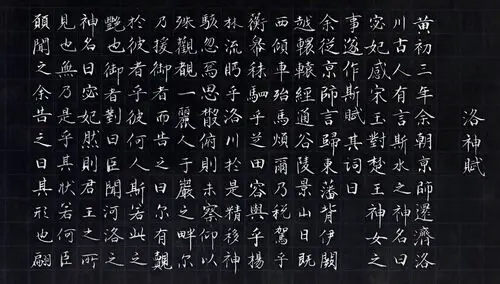 洛神賦
黃初三年余朝京師還濟洛
川古人有言斯水之神名曰
宓妃感宋玉對楚王神女之
事遂作斯賦其詞曰
余從京師言歸東藩背伊闕
越轘轅經通谷陵景山日既
西傾車殆馬煩爾乃稅駕乎
衡皋秣駟乎芝田容與乎楊
林流眄乎洛川於是精移神
駭忽焉思散俯則未察仰以
殊觀覩一麗人于巖之畔尔
乃援御者而告之曰尔有覿
於彼者乎彼何人斯若此之
艷也御者對曰臣聞河洛之
神名曰宓妃然則君王之所
見也無乃是乎其狀若何臣
願聞之余告之曰其形也翩